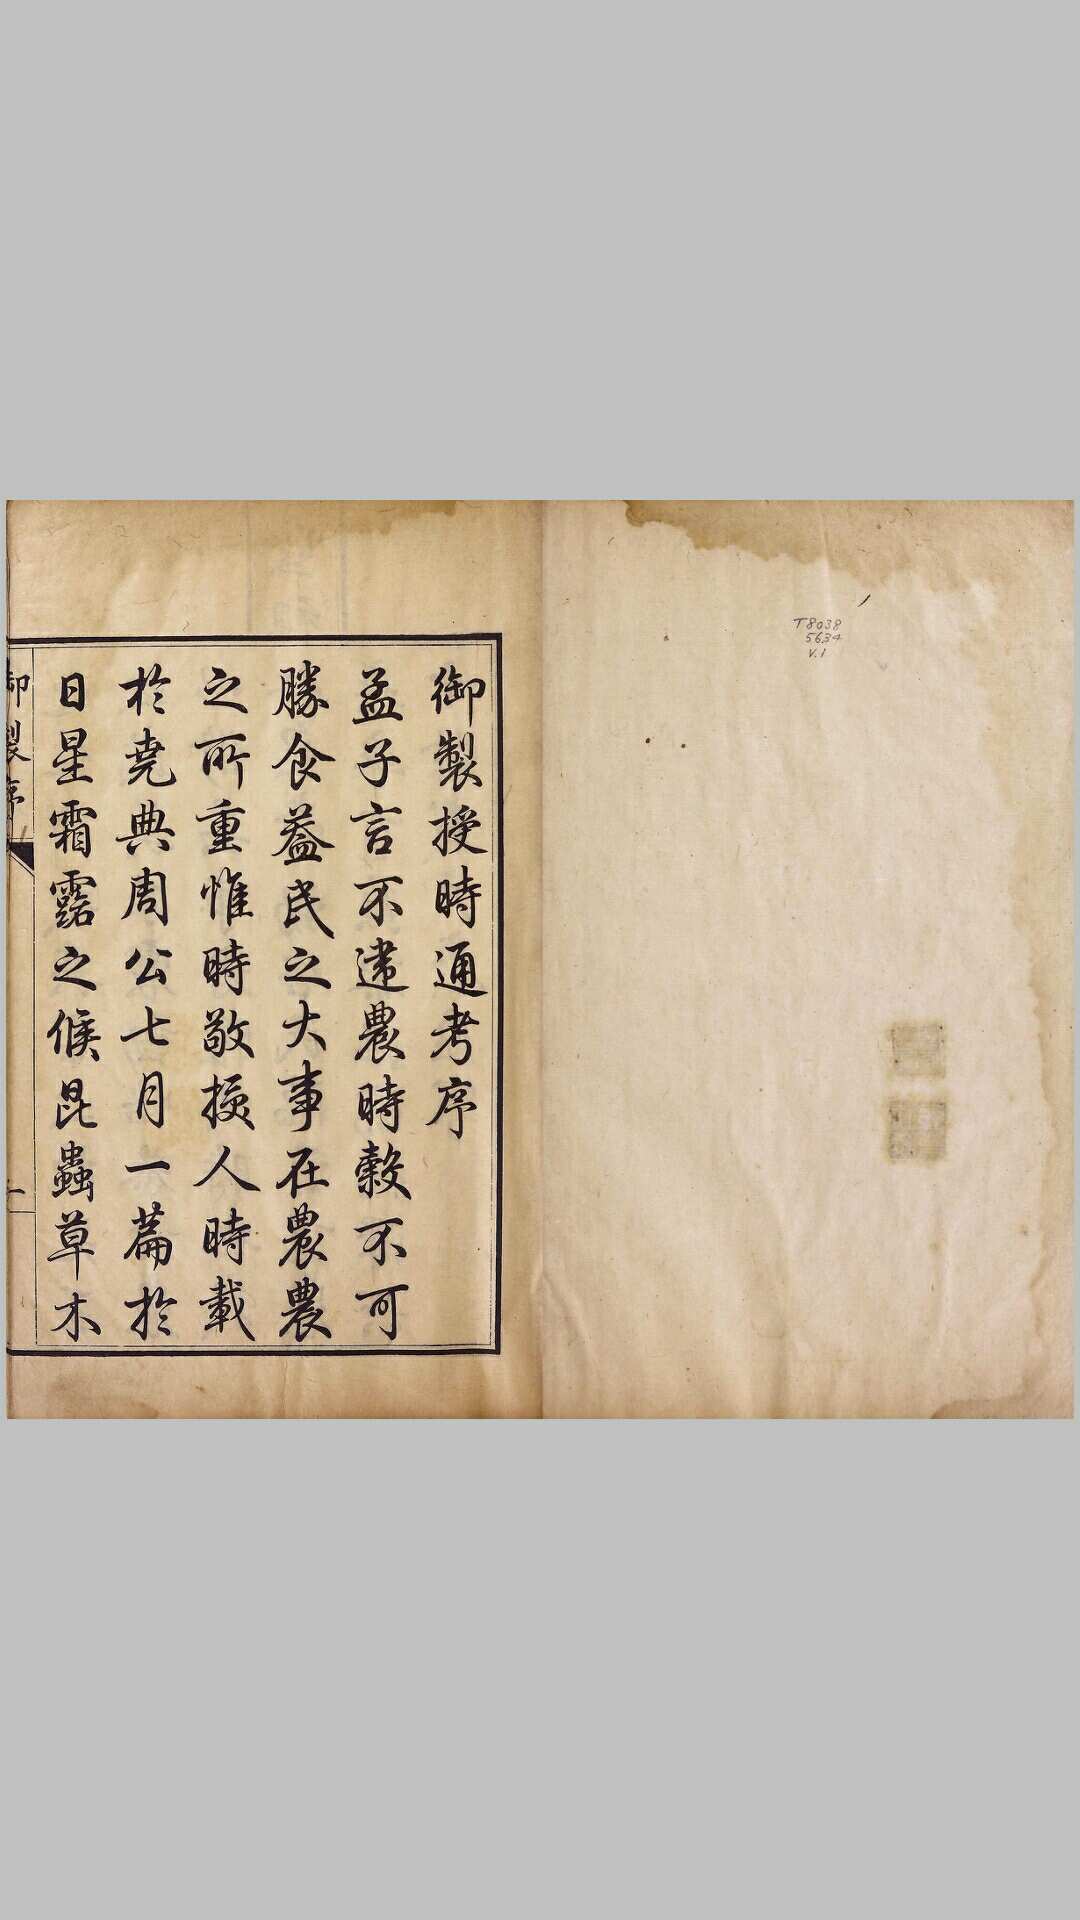 T8038
5634
v.1
御製授時通考序
孟子言不違農時穀不可
勝食葢民之大事在農農
之所重惟時敬授人時載
於堯典周公七月一篇於
日星霜露之候昆蟲草木
御製序
一